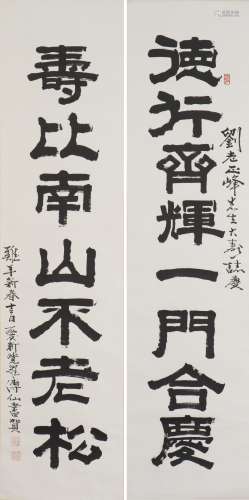 德行齊輝一門合慶
劉老正峰先生大壽誌慶
壽比南山不老松
雞年新春吉日愛新覺羅溥仙書賀